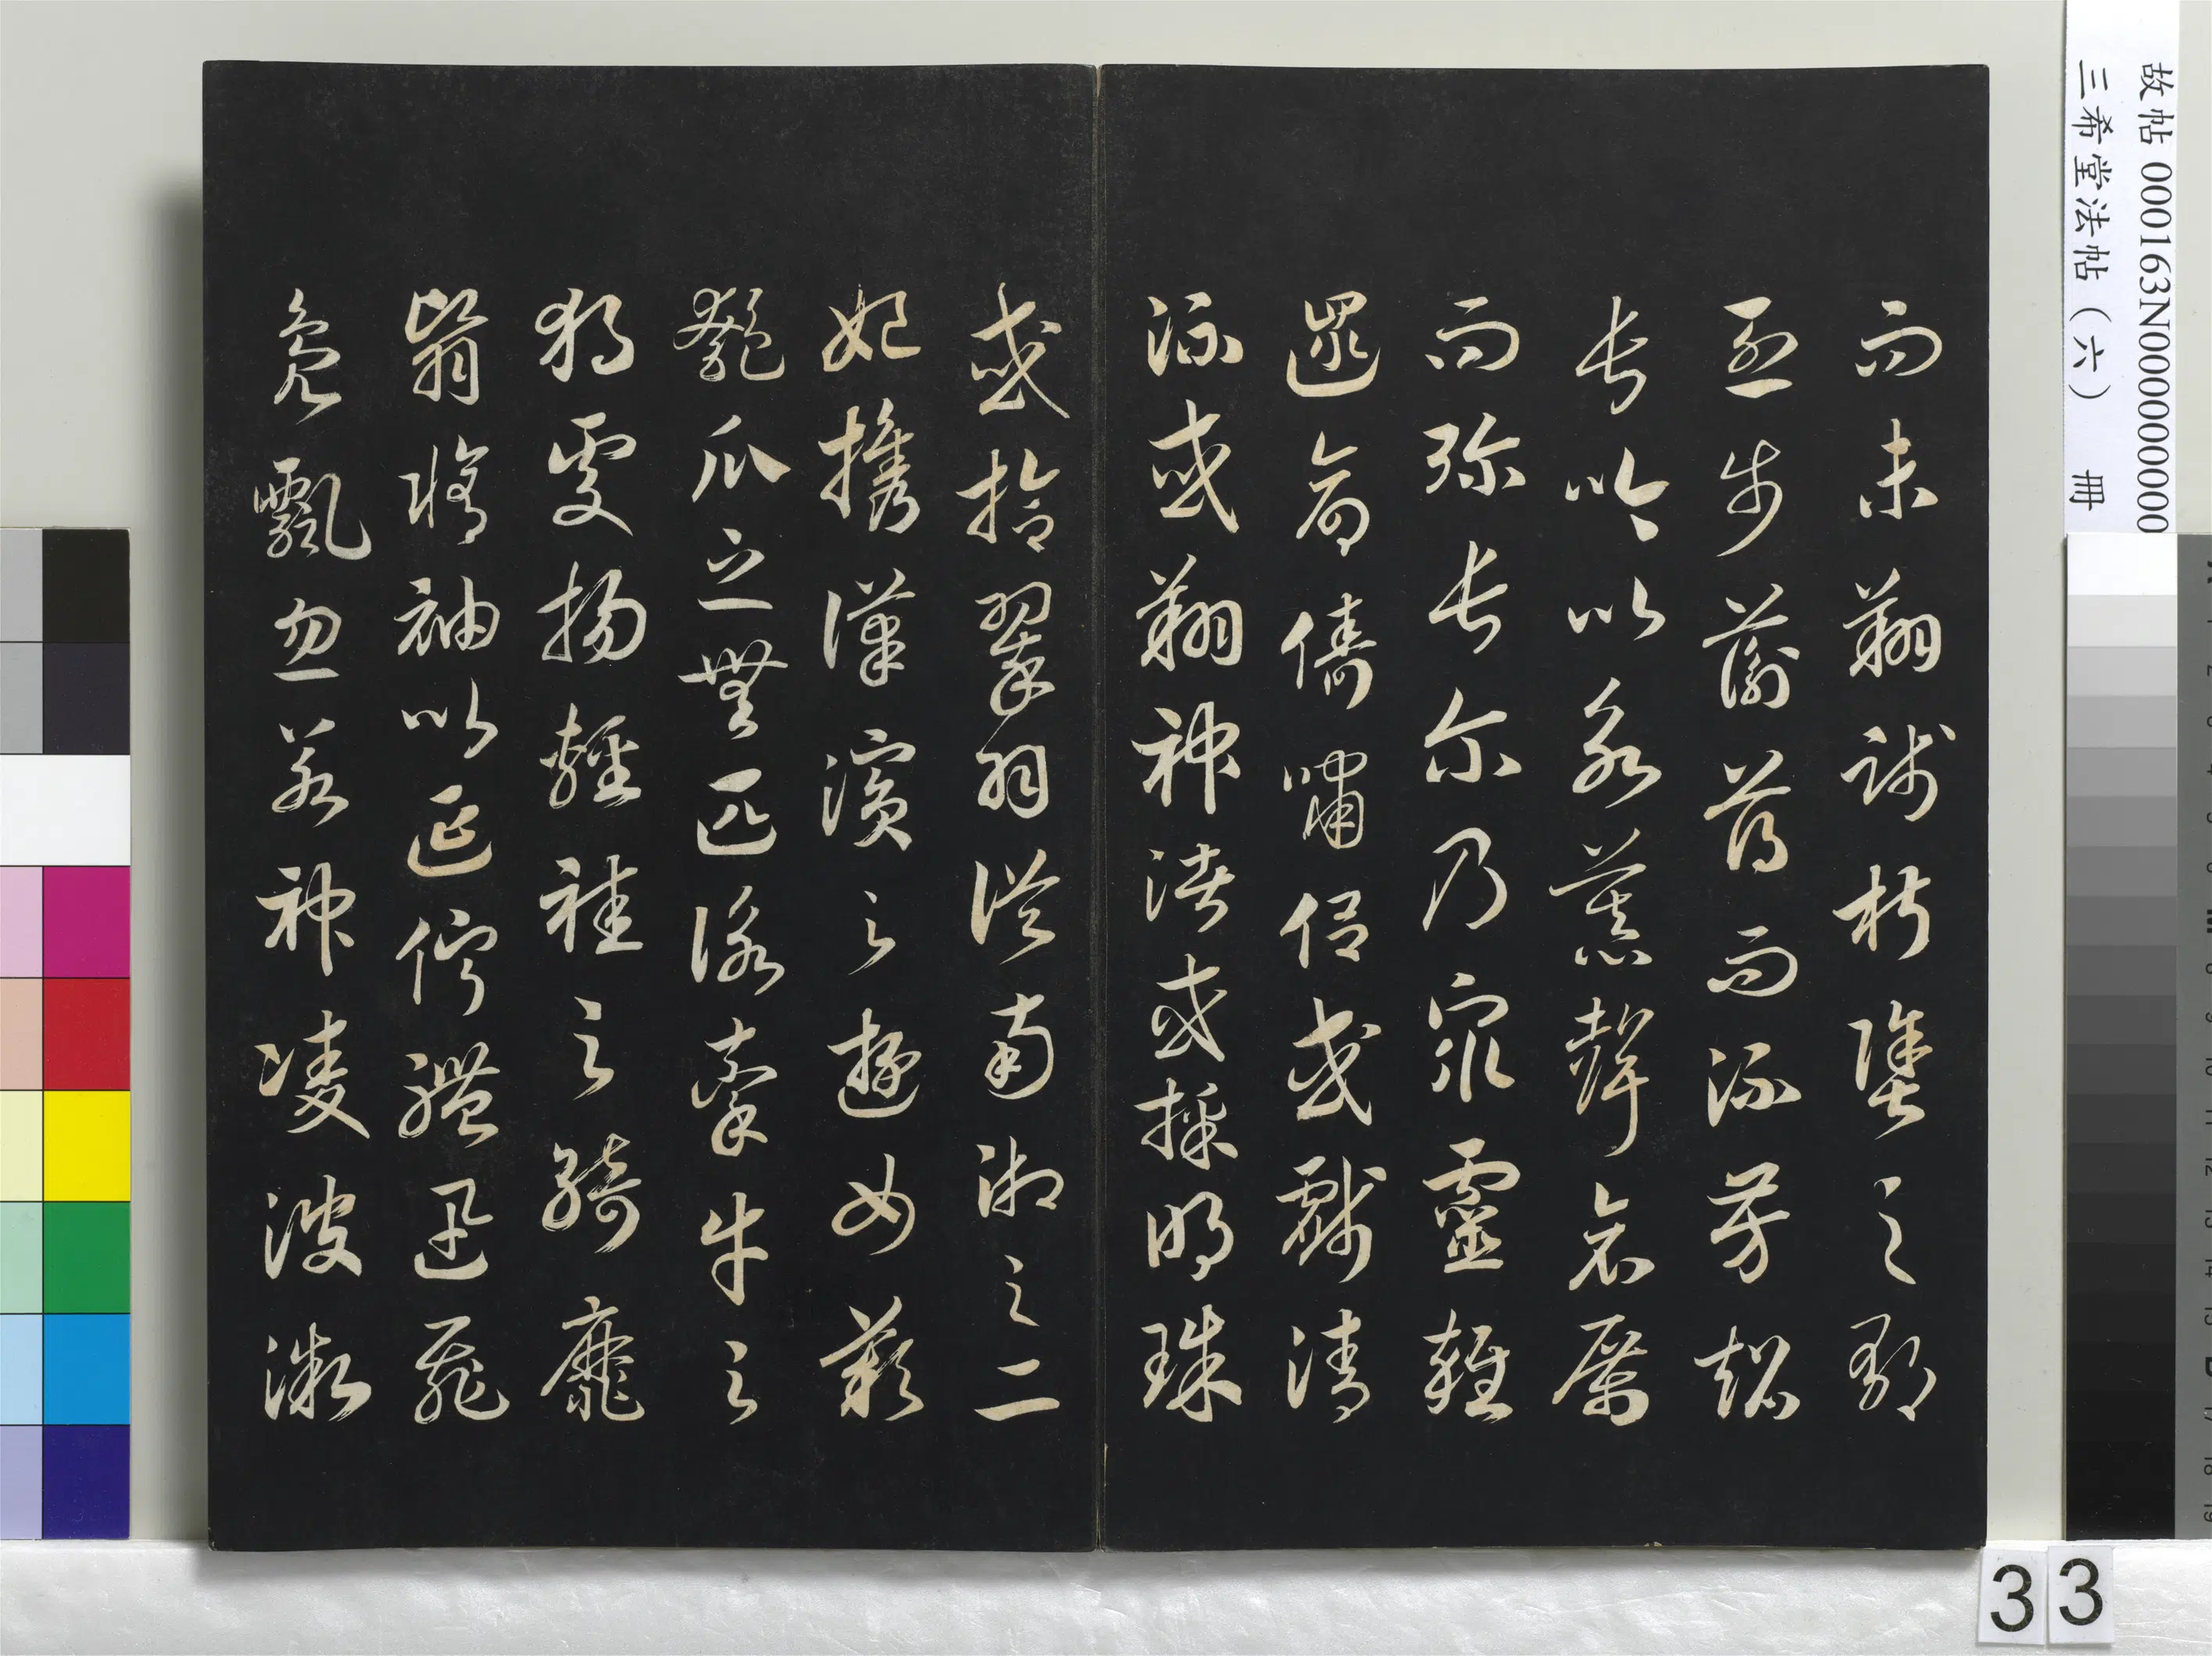 而未翔踐椒塗之郁
烈步蘅薄而流芳超
長吟以永慕聲哀厲
而弥長尔乃眾靈雜
遝命儔嘯侣或戲清
流或翔神渚或採明珠
或拾翠羽從南湘之二
妃攜漢濱之遊女歎
匏瓜之無匹詠牽牛之
獨處揚輕袿之綺靡
翳脩袖以延佇體迅飛
鳧飄忽若神凌波微
故帖 000163N000000000
三希堂法帖（六） 冊
33